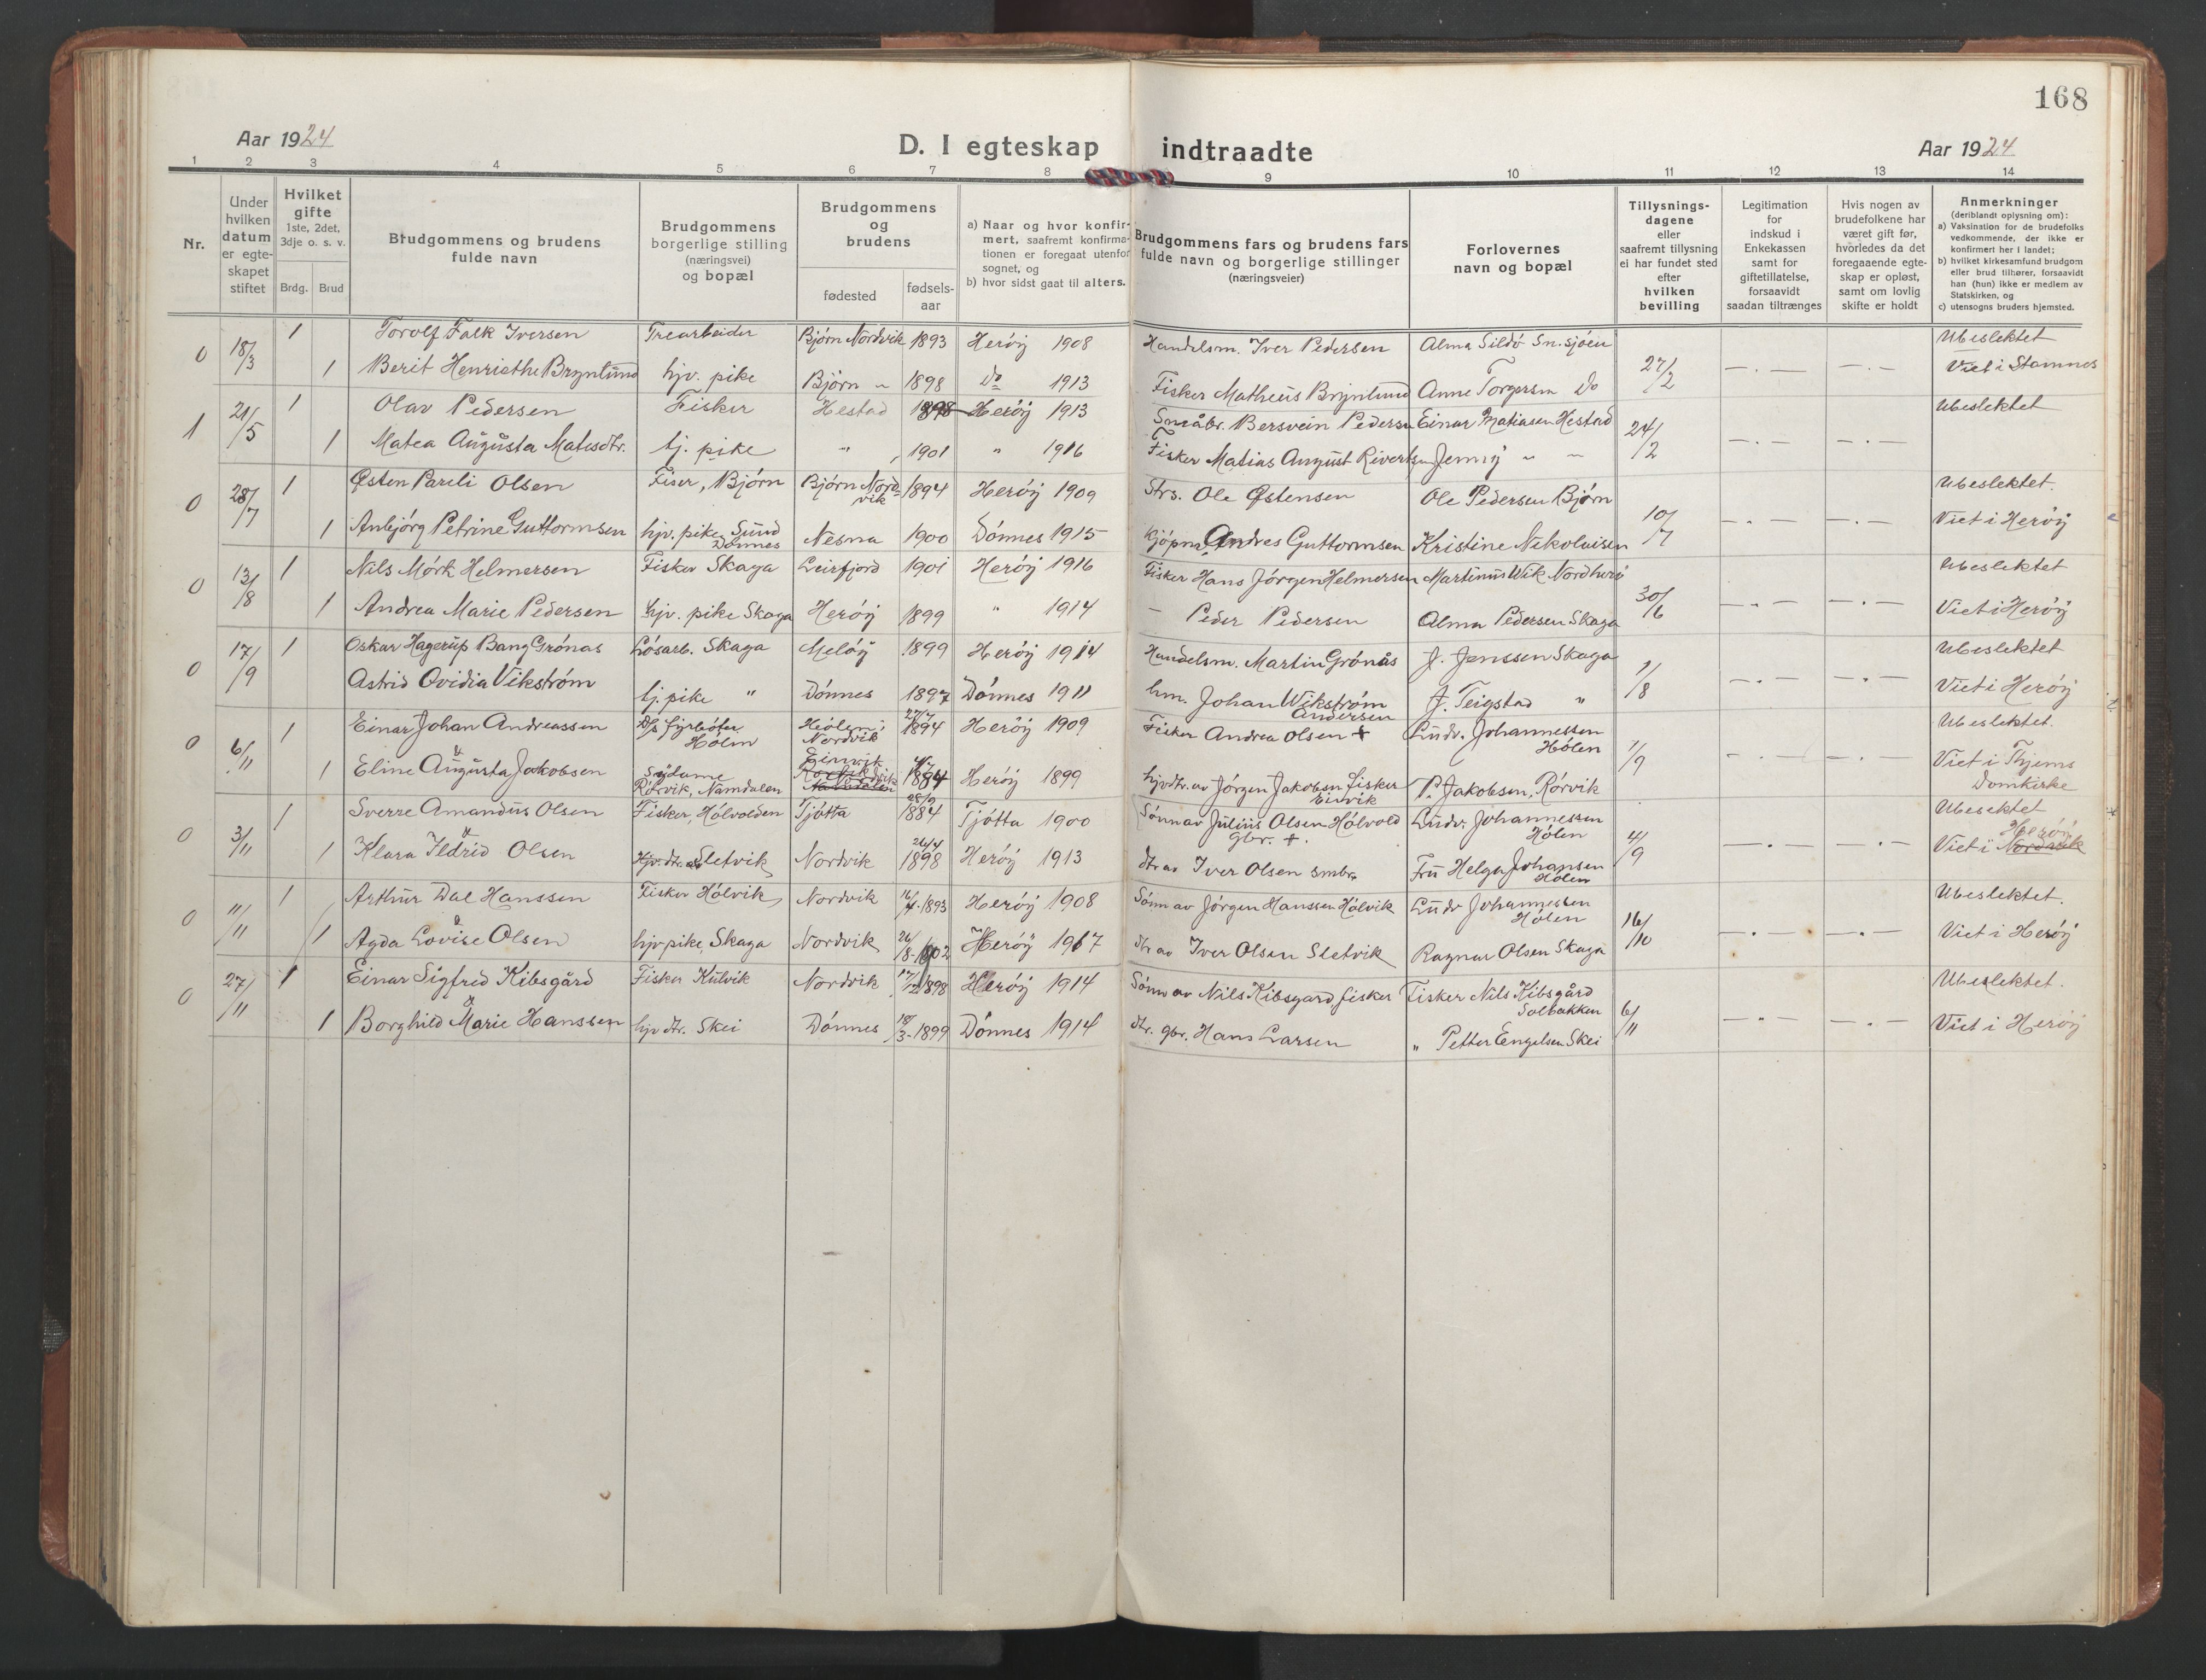 168
Aar 1924
D. I egteskap indtraadte
Aar 1924
1 2 3 4 5 6 7 8 9 10 11 12 13 14
Nr.
Under hvilken datum er egteskapet stiftet
Hvilket gifte 1ste, 2det, 3dje o. s. v.
Brdg. Brud
Brudgommens og brudens fulde navn
Brudgommens borgerlige stilling (næringsvei) og bopæl
Brudgommens og brudens
fødested
fødsels-aar
a) Naar og hvor konfirmert, saafremt konfirmationen er foregaat utenfor sognet, og
b) hvor sidst gaat til alters.
Brudgommens fars og brudens fars fulde navn og borgerlige stillinger (næringsveier)
Forlovernes navn og bopæl
Tillysningsdagene eller saafremt tillysning ei har fundet sted efter hvilken bevilling
Legitimation for indskud i Enkekassen samt for giftetillatelse, forsaavidt saadan tiltrænges
Hvis nogen av brudefolkene har været gift før, hvorledes da det foregaaende egteskap er opløst, samt om lovlig skifte er holdt
Anmerkninger (deriblandt oplysning om):
a) Vaksination for de brudefolks vedkommende, der ikke er konfirmert her i landet;
b) hvilket kirkesamfund brudgom eller brud tilhører, forsaavidt han (hun) ikke er medlem av Statskirken, og
c) utensogns bruders hjemsted.
0 18/3 1 Torolf Falk Iversen Trearbeider Bjørn Nordvik 1893 Herøy 1908 Handelsm. Iver Pedersen Alma Sildø Sn.sjøen 27/2 Ubeslektet
1 Berit Henriethe Brynlund hjv. pike Bjørn " 1898 do 1913 Fisker Matheus Brynlund Anne Torgersen do Viet i Stamnes
1 21/5 1 Olav Pedersen Fisker Hestad 1898 Herøy 1913 Småbr. Bersvein Pedersen Einar Matiasen Hestad 24/2 Ubeslektet
1 Matea Augusta Matisdtr. tj. pike " 1901 " 1916 Fisker Matias August Rivertsen Jenny " "
0 28/7 1 Østen Pareli Olsen Fiser, Bjørn Bjørn Nordvik 1894 Herøy 1909 Strs. Ole Østensen Ole Pedersen Bjørn 10/7 Ubeslektet.
1 Anbjørg Petrine Guttormsen hjv. pike Sund Dønnes Nesna 1900 Dønnes 1915 Kjøpm. Andres Guttormsen Kristine Nikolaisen Viet i Herøy
0 13/8 1 Nils Mørk Helmersen Fisker Skaga Leirfjord 1901 Herøy 1916 Fisker Hans Jørgen Helmersen Martinus Wik Nordherø 30/6 Ubeslektet
1 Andrea Marie Pedersen hjv. pike Skaga Herøy 1899 " 1914 – Peder Pedersen Alma Pedersen Skaga Viet i Herøy
0 17/9 1 Oskar Hagerup Bang Grønås Løsarb. Skaga Meløy 1899 Herøy 1914 Handelsm. Martin Grønås J. Jenssen Skaga 1/8 Ubeslektet
Astrid Ovidia Vikstrøm tj. pike " Dønnes 1897 Dønnes 1911 hm. Johan Wikstrøm Andersen J. Teigstad " Viet i Herøy
0 6/11 1 Einar Johan Andreassen D/s fyrbøter Hølen Hølen i Nordvik 27/7 1894 Herøy 1909 Fisker Andrea Olsen + Ludv. Johannessen Hølen 1/9 Ubeslektet.
1 Eline Augusta Jakobsen Sydame Rørvik, Namdalen Einvik 1884 Herøy 1899 hjvdtr. av Jørgen Jakobsen fisker Einvik P. Jakobsen, Rørvik Viet i Thjems Domkirke
0 3/11 1 Sverre Amandus Olsen Fisker, Hølvolden Tjøtta 28/9 1884 Tjøtta 1900 Sønn av Julius Olsen Hølvold gbr. +. Ludv. Johannessen Hølen 4/9 Ubesektet
1 Klara Ildrid Olsen Hjv. dtr. av Sletvik Nordvik 26/4 1898 Herøy 1913 dtr av Iver Olsen smbr. Fru Helga Johansen Hølen Viet i Nordvik Herøy
0 11/11 1 Arthur Dal Hanssen Fisker Hølvik Nordvik 16/4-1893 Herøy 1908 Sønn av Jørgen Hanssen Hølvik Ludv Johannessen Hølen 16/10 Ubeslektet.
1 Agda Lovise Olsen hjv pike, Skaga Nordvik 26/8-1902 Herøy 1917 dtr av Iver Olsen Sletvik Ragnar Olsen Skaga Viet i Herøy
0 27/11 1 Einar Sigfred Kibsgård Fisker Kulvik Nordvik 17/12 1898 Herøy 1914 Sønn av Nils Kibsgård, fisker Fisker Nils Kibsgård Solbakken 6/11 Ubeslektet.
1 Borghild Marie Hanssen hjv dtr. Skei Dønnes 18/3-1899 Dønnes 1914 dtr. gbr. Hans Larsen " Petter Engelsen Skei Viet i Herøy